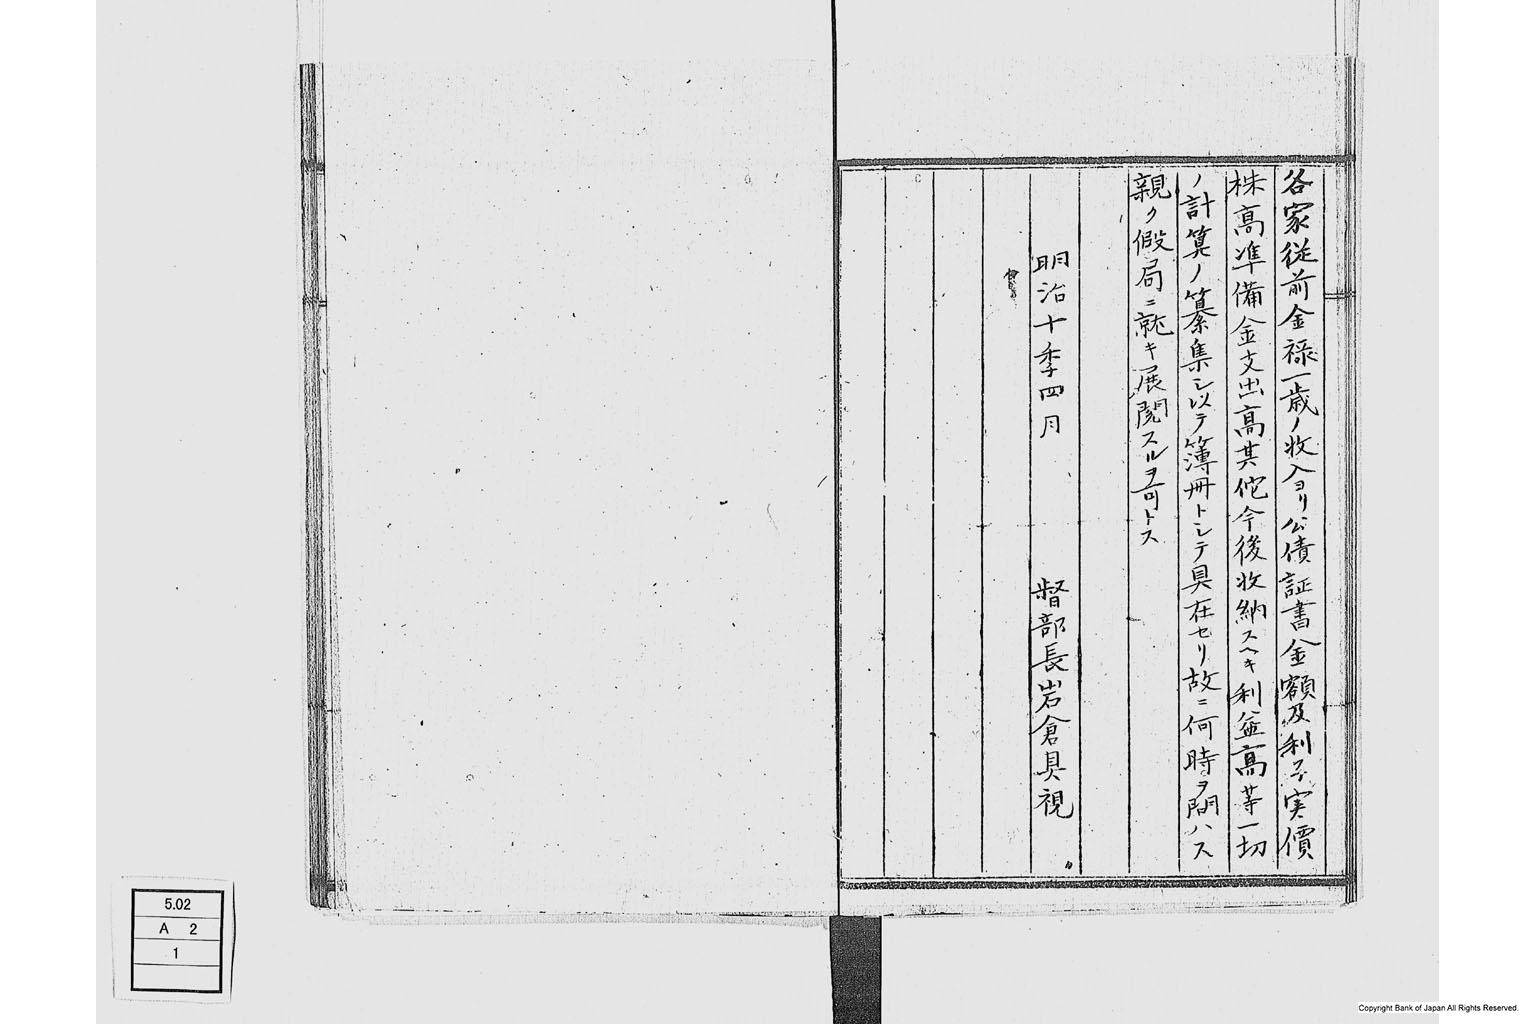 各家従前金禄一歳ノ收入ヨリ公債証書金額及利子実價
株高準備金支出高其佗今後收納スヘキ利益高等一切
ノ計算ノ纂集シ以テ簿冊トシテ具在セリ故ニ何時ヲ問ハス
親ク假局ニ就キ展閲スルヲ可トス
明治十季四月
督部長岩倉具視
5.02
A 2
1
Copyright Bank of Japan All Rights Reserved.